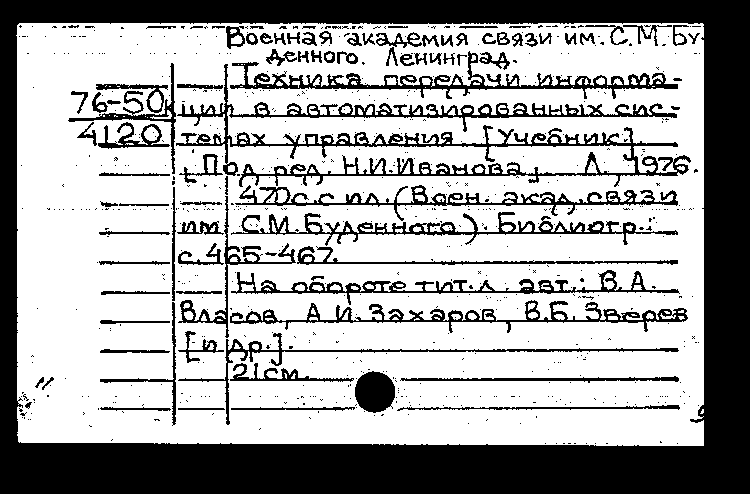 Военная академия связи им. С.М. Бу-
денного. Ленинград.
Техника передачи информа-
76-50к
ции в автоматизированных сис-
4120
темах управления [Учебник]
[Под ред. Н.И.Иванова]. Л., 1976.
470с. с ил. (Воен. акад. связи
им С.М. Буденного). Библиогр.:
с. 465-467.
На обороте тит.л. авт.: В.А.
Власов, А.И. Захаров, В.Б. Зверев
[и др.].
21см.